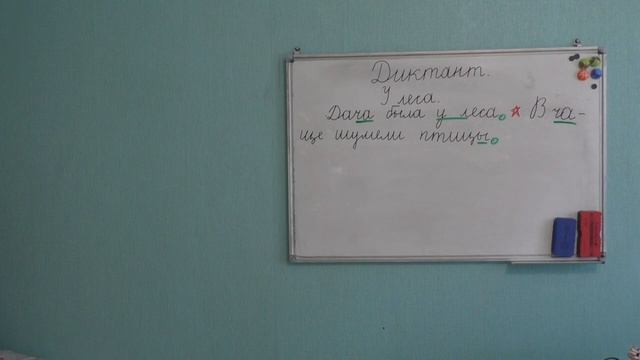 Диктант.
У леса.
Дача была у леса. В ча-
ще шумели птицы.